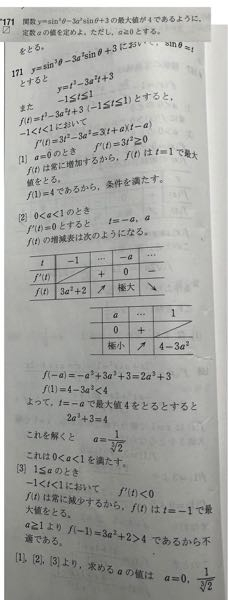 *171 関数 y=sin³θ−3a²sinθ+3 の最大値が4であるように,
定数 a の値を定めよ。ただし, a≧0 とする。
をとる。
171 y=sin³θ−3a²sinθ+3 において, sinθ=t
とすると,
y=t³−3a²t+3
また −1≦t≦1
f(t)=t³−3a²t+3 (−1≦t≦1) とすると,
−1<t<1 において
f'(t)=3t²−3a²=3(t+a)(t−a)
[1] a=0 のとき f'(t)=3t²≧0
f(t) は常に増加するから, f(t) は t=1 で最大
値をとる。
f(1)=4 であるから, 条件を満たす。
[2] 0<a<1 のとき
f'(t)=0 とすると t=−a, a
f(t) の増減表は次のようになる。
t −1 … −a …
f'(t) + 0 −
f(t) 3a²+2 ↗ 極大 ↘
a … 1
0 +
極小 ↗ 4−3a²
f(−a)=−a³+3a³+3=2a³+3
f(1)=4−3a²<4
よって, t=−a で最大値4をとるとすると
2a³+3=4
これを解くと a=1/∛2
これは 0<a<1 を満たす。
[3] 1≦a のとき
−1<t<1 において f'(t)<0
f(t) は常に減少するから, f(t) は t=−1 で最
大値をとる。
a≧1 より f(−1)=3a²+2>4 であるから不
適である。
[1], [2], [3] より, 求める a の値は a=0, 1/∛2